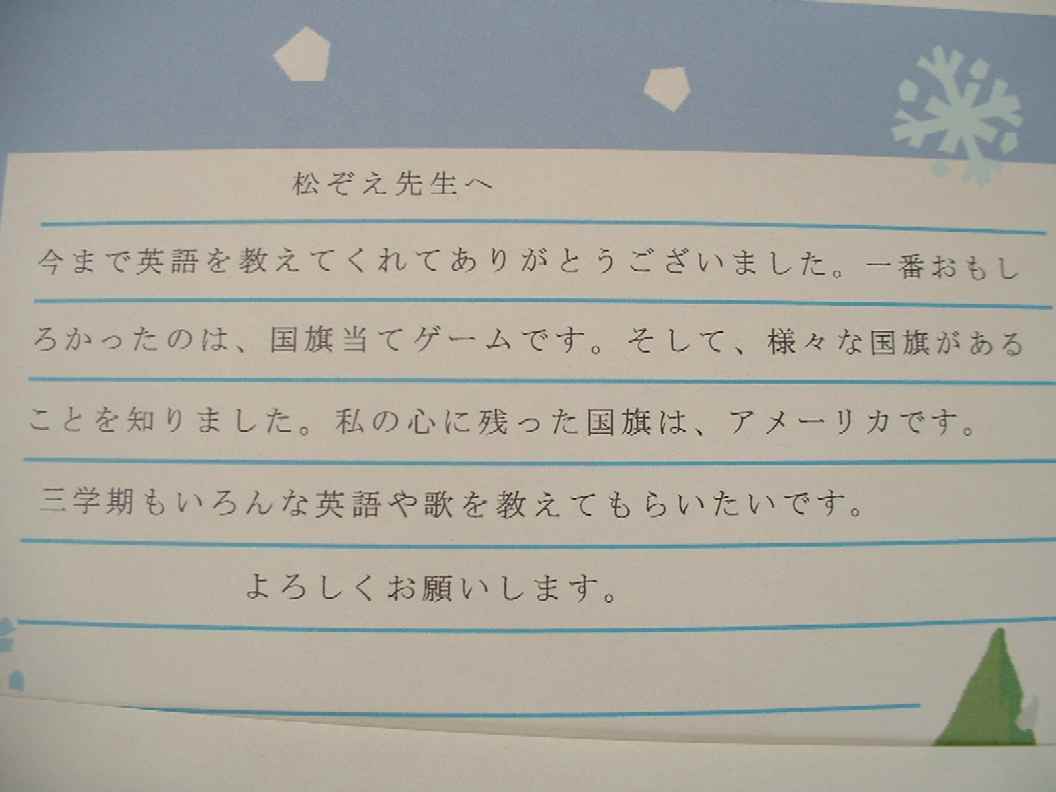 松ぞえ先生へ
今まで英語を教えてくれてありがとうございました。一番おもし
ろかったのは、国旗当てゲームです。そして、様々な国旗がある
ことを知りました。私の心に残った国旗は、アメーリカです。
三学期もいろんな英語や歌を教えてもらいたいです。
よろしくお願いします。